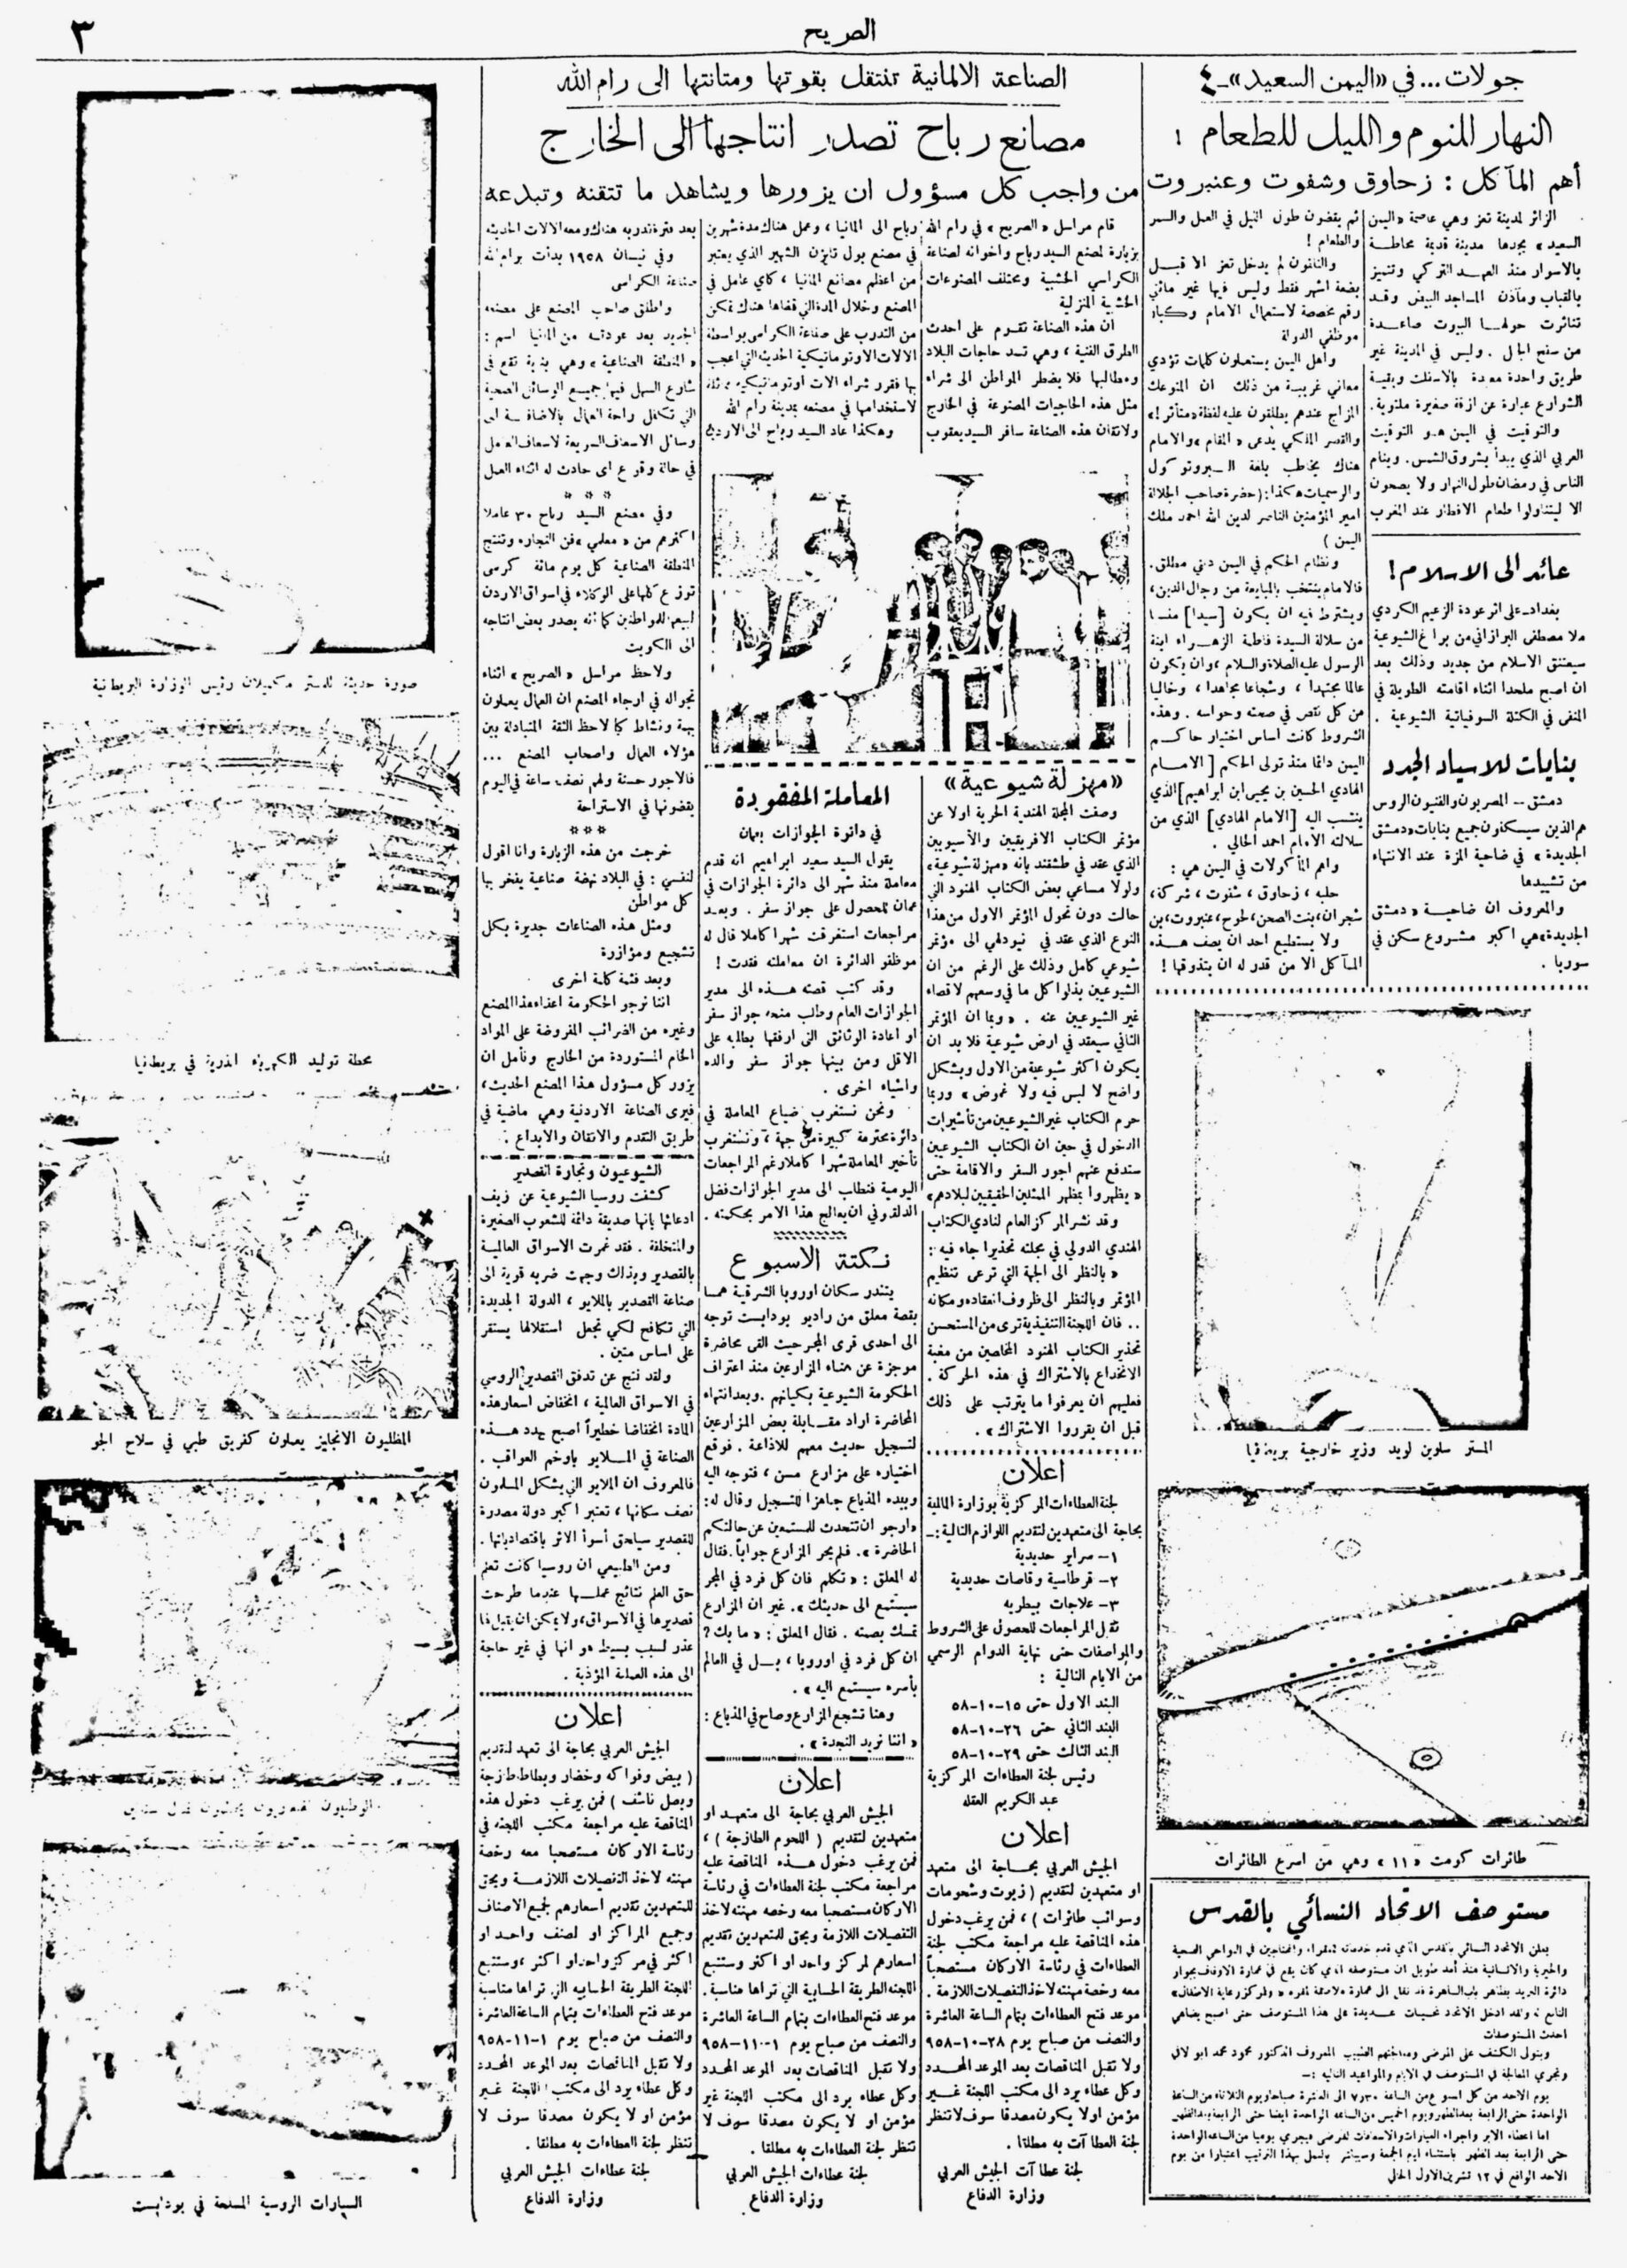 الصريح
٣
جولات... في «اليمن السعيد»-٤
النهار للنوم والليل للطعام !
أهم المآكل : زحاوق وشفوت وعنبروت
الزائر لمدينة تعز وهي عاصمة «اليمن
السعيد» يجدها مدينة قديمة محاطة
بالاسوار منذ العهد التركي وتتميز
بالقباب ومآذن المساجد البيض وقد
تناثرت حولها البيوت صاعدة
من سفح الجبال . وليس في المدينة غير
طريق واحدة معبدة بالاسفلت وبقية
الشوارع عبارة عن ازقة صغيرة ملتوية.
والتوقيت في اليمن هو التوقيت
العربي الذي يبدأ بشروق الشمس . وينام
الناس في رمضان طول النهار ولا يصحون
الا ليتناولوا طعام الافطار عند المغرب
ثم يقضون طول الليل في العمل والسمر
والطعام !
والقانون لم يدخل تعز الا قبل
بضعة اشهر فقط وليس فيها غير مائتي
رقم مخصصة لاستعمال الامام وكبار
موظفي الدولة
وأهل اليمن يستعملون كلمات تؤدي
معاني غريبة من ذلك ان المتوعك
المزاج عندهم يطلقون عليه لفظة «متأثر!»
والقصر الملكي يدعى «المقام» والامام
هناك يخاطب بلغة البروتوكول
والرسميات هكذا: (حضرة صاحب الجلالة
امير المؤمنين الناصر لدين الله احمد ملك
اليمن )
ونظام الحكم في اليمن ديني مطلق.
فالامام ينتخب بالمبايعة من رجال الدين،
ويشترط فيه ان يكون [سيدا] منـا
من سلالة السيدة فاطمة الزهراء ابنة
الرسول عليه الصلاة والسلام، وان يكون
عالما مجتهدا ، وشجاعا مجاهدا ، وخاليا
من كل نقص في صحته وحواسه . وهذه
الشروط كانت اساس اختيار حاكم
اليمن دائما منذ تولى الحكم [ الامام
الهادي الحسين بن يحيى ابن ابراهيم] الذي
ينتسب اليه [الامام الهادي] الذي من
سلالته الامام احمد الحالي .
واهم المأكولات في اليمن هي :
حلبه ، زحاوق ، شفوت ، شركة،
شجران، بنت الصحن، لحوح، عنبروت، بن
ولا يستطيع احد ان يصف هذه
المآكل الا من قدر له ان يتذوقها !
عائد الى الاسلام!
بغداد-على اثر عودة الزعيم الكردي
ملا مصطفى البرازاني من براغ الشيوعية
سيعتنق الاسلام من جديد وذلك بعد
ان اصبح ملحدا اثناء اقامته الطويلة في
المنفى في الكتلة السوفياتية الشيوعية .
بنايات للاسياد الجدد
دمشق -- المصريون والفنيون الروس
هم الذين سيسكنون جميع بنايات «دمشق
الجديدة» في ضاحية المزة عند الانتهاء
من تشييدها
والمعروف ان ضاحية «دمشق
الجديدة» هي اكبر مشروع سكن في
سوريا .
المستر سلوين لويد وزير خارجية بريطانيا
طائرات كومت «١١» وهي من اسرع الطائرات
مستوصف الاتحاد النسائي بالقدس
يعلن الاتحاد النسائي بالقدس الذي قدم خدماته للفقراء والمحتاجين في النواحي الصحية
والخيرية والانسانية منذ أمد طويل ان مستوصفه الذي كان يقع في عمارة الاوقاف بجوار
دائرة البريد بظاهر باب الساهرة قد نقل الى عمارة «ملاصقة لمقره» «ولمركز رعاية الاطفال»
التابع له ولقد ادخل الاتحاد تحسينات عديدة على هذا المستوصف حتى اصبح يضاهي
احدث المستوصفات
ويتولى الكشف على المرضى ومعالجتهم الطبيب المعروف الدكتور محمود محمد ابو لافي
وتجري المعالجة في المستوصف في الايام والمواعيد التالية :-
يوم الاحد من كل اسبوع من الساعة ٧٫٣٠ الى العاشرة صباحا ويوم الثلاثاء من الساعة
الواحدة حتى الرابعة بعد الظهر ويوم الخميس من الساعة الواحدة ايضا حتى الرابعة بعد الظهر
اما اعطاء الابر واجراء الغيارات والاسعافات للمرضى فيجري يوميا من الساعة الواحدة
حتى الرابعة بعد الظهر باستثناء ايام الجمعة وسيباشر بالعمل بهذا الترتيب اعتبارا من يوم
الاحد الواقع في ١٢ تشرين الاول الحالي
الصناعة الالمانية تنتقل بقوتها ومتانتها الى رام الله
مصانع رباح تصدر انتاجها الى الخارج
من واجب كل مسؤول ان يزورها ويشاهد ما تتقنه وتبدعه
قام مراسل «الصريح» في رام الله
بزيارة لمصنع السيد رباح واخوانه لصناعة
الكراسي الخشبية ومختلف المصنوعات
الخشبية المنزلية
ان هذه الصناعة تقوم على احدث
الطرق الفنية ، وهي تسد حاجات البلاد
ومطالبها فلا يضطر المواطن الى شراء
مثل هذه الحاجيات المصنوعة في الخارج
ولاتقان هذه الصناعة سافر السيد يعقوب
رباح الى المانيا ، وعمل هناك مدة شهرين
في مصنع بول تايزن الشهير الذي يعتبر
من اعظم مصانع المانيا ، كأي عامل في
المصنع وخلال المدة التي قضاها هناك تمكن
من التدرب على صناعة الكراسي بواسطة
الالات الاوتوماتيكية الحديثة التي اعجب
بها فقرر شراء الات اوتوماتيكية مثلها
لاستخدامها في مصنعه بمدينة رام الله
وهكذا عاد السيد رباح الى الاردن
بعد فترة تدريبه هناك ومعه الالات الحديثه
وفي نيسان ١٩٥٨ بدأت برام الله
صناعة الكراسي
واطلق صاحب المصنع على مصنعه
الجديد بعد عودته من المانيا اسم :
«المنطقة الصناعية» وهي بناية تقع في
شارع السهل فيها جميع الوسائل الصحية
التي تكفل راحة العمال بالاضافة الى
وسائل الاسعاف السريعة لاسعاف العامل
في حالة وقوع اي حادث له اثناء العمل
* * *
وفي مصنع السيد رباح ٣٠ عاملا
اكثرهم من «معلمي» فن النجاره وتنتج
المنطقة الصناعية كل يوم مائة كرسي
توزع كلها على الوكلاء في اسواق الاردن
لبيعها للمواطنين كما انه يصدر بعض انتاجه
الى الكويت
ولاحظ مراسل «الصريح» اثناء
تجواله في ارجاء المصنع ان العمال يعملون
بهمة ونشاط كما لاحظ الثقة المتبادلة بين
هؤلاء العمال واصحاب المصنع ...
فالاجور حسنة ولهم نصف ساعة في اليوم
يقضونها في الاستراحة
***
خرجت من هذه الزيارة وانا اقول
لنفسي : في البلاد نهضة صناعية يفخر بها
كل مواطن
ومثل هذه الصناعات جديرة بكل
تشجيع ومؤازرة
وبعد فثمة كلمة اخرى
اننا نرجو الحكومة اعفاء هذا المصنع
وغيره من الضرائب المفروضة على المواد
الخام المستوردة من الخارج ونأمل ان
يزور كل مسؤول هذا المصنع الحديث،
فيرى الصناعة الاردنية وهي ماضية في
طريق التقدم والاتقان والابداع .
الشيوعيون وتجارة القصدير
كشفت روسيا الشيوعية عن زيف
ادعائها بانها صديقة دائمة للشعوب الصغيرة
والمتخلفة . فقد غمرت الاسواق العالمية
بالقصدير وبذلك وجهت ضربه قوية الى
صناعة القصدير بالملايو ، الدولة الجديدة
التي تكافح لكي تجعل استقلالها يستقر
على اساس متين .
ولقد نتج عن تدفق القصدير الروسي
في الاسواق العالمية ، انخفاض اسعار هذه
المادة انخفاضا خطيراً اصبح يهدد هذه
الصناعة في الملايو باوخم العواقب .
فالمعروف ان الملايو التي يشكل المسلمون
نصف سكانها ، تعتبر اكبر دولة مصدرة
للقصدير سيلحق أسوأ الاثر باقتصادياتها.
ومن الطبيعي ان روسيا كانت تعلم
حق العلم نتائج عملها عندما طرحت
قصديرها في الاسواق، ولا يمكن ان يقبل لها
عذر لسبب بسيط هو انها في غير حاجة
الى هذه العملية المؤذية .
اعلان
الجيش العربي بحاجة الى تعهد لتقديم
( بيض وفواكه وخضار وبطاطا طازجة
وبصل ناشف ) فمن يرغب دخول هذه
المناقصة عليه مراجعة مكتب اللجنه في
رئاسة الاركان مستصحبا معه رخصة
مهنته لاخذ التفصيلات اللازمة ويحق
للمتعهدين تقديم اسعارهم لجميع الاصناف
وجميع المراكز او لصنف واحد او
اكثر في مركز واحد او اكثر، وستتبع
اللجنة الطريقة الحسابيه التي تراها مناسبة
موعد فتح العطاءات بتمام الساعة العاشرة
والنصف من صباح يوم ١-١١-٩٥٨
ولا تقبل المناقصات بعد الموعد المحدد
وكل عطاء يرد الى مكتب اللجنة غير
مؤمن او لا يكون مصدقا سوف لا
تنظر لجنة العطاءات به مطلقا .
لجنة عطاءات الجيش العربي
وزارة الدفاع
المعاملة المفقودة
في دائرة الجوازات بعمان
يقول السيد سعيد ابراهيم انه قدم
معاملة منذ شهر الى دائرة الجوازات في
عمان للحصول على جواز سفر . وبعد
مراجعات استغرقت شهرا كاملا قال له
موظفو الدائرة ان معاملته فقدت !
وقد كتب قصته هذه الى مدير
الجوازات العام وطلب منحه جواز سفر
او اعادة الوثائق التي ارفقها بطلبه على
الاقل ومن بينها جواز سفر والده
واشياء اخرى .
ونحن نستغرب ضياع المعاملة في
دائرة محترمة كبيرة من جهة ، ونستغرب
تأخير المعاملة شهرا كاملا رغم المراجعات
اليومية فنطلب الى مدير الجوازات فضل
الدلقوني ان يعالج هذا الامر بحكمته .
نكتة الاسبوع
يتندر سكان اوروبا الشرقية همسا
بقصة معلق من راديو بودابست توجه
الى احدى قرى المجر حيث القى محاضرة
موجزة عن هناء المزارعين منذ اعتراف
الحكومة الشيوعية بكيانهم . وبعد انتهاء
المحاضرة اراد مقابلة بعض المزارعين
لتسجيل حديث معهم للاذاعة . فوقع
اختياره على مزارع مسن ، فتوجه اليه
وبيده المذياع جاهزا للتسجيل وقال له:
«ارجو ان تتحدث للمستمعين عن حالتكم
الحاضرة». فلم يحر المزارع جواباً. فقال
له المعلق : «تكلم فان كل فرد في المجر
سيستمع الى حديثك». غير ان المزارع
تمسك بصمته . فقال المعلق : «ما بك؟
ان كل فرد في اوروبا ، بل في العالم
بأسره سيستمع اليه» .
وهنا تشجع المزارع وصاح في المذياع :
«اننا نريد النجدة» .
اعلان
الجيش العربي بحاجة الى متعهد او
متعهدين لتقديم ( اللحوم الطازجة ) ،
فمن يرغب دخول هذه المناقصة عليه
مراجعة مكتب لجنة العطاءات في رئاسة
الاركان مستصحبا معه رخصه مهنته لاخذ
التفصيلات اللازمة ويحق للمتعهدين تقديم
اسعارهم لمركز واحد او اكثر وستتبع
اللجنه الطريقة الحسابية التي تراها مناسبة.
موعد فتح العطاءات بتمام الساعة العاشرة
والنصف من صباح يوم ١-١١-٩٥٨
ولا تقبل المناقصات بعد الموعد المحدد
وكل عطاء يرد الى مكتب اللجنة غير
مؤمن او لا يكون مصدقا سوف لا
تنظر لجنة العطاءات به مطلقا .
لجنة عطاءات الجيش العربي
وزارة الدفاع
«مهزلة شيوعية»
وصفت المجلة الهندية الحرية اولا عن
مؤتمر الكتاب الافريقيين والآسيويين
الذي عقد في طشقند بانه «مهزلة شيوعية»
ولولا مساعي بعض الكتاب الهنود التي
حالت دون تحول المؤتمر الاول من هذا
النوع الذي عقد في نيودلهي الى مؤتمر
شيوعي كامل وذلك على الرغم من ان
الشيوعيين بذلوا كل ما في وسعهم لاقصاء
غير الشيوعيين عنه . «وبما ان المؤتمر
الثاني سيعقد في ارض شيوعية فلا بد ان
يكون اكثر شيوعية من الاول وبشكل
واضح لا لبس فيه ولا غموض» وربما
حرم الكتاب غير الشيوعيين من تأشيرات
الدخول في حين ان الكتاب الشيوعيين
ستدفع عنهم اجور السفر والاقامة حتى
«يظهروا بمظهر الممثلين الحقيقيين لبلادهم»
وقد نشر المركز العام لنادي الكتاب
الهندي الدولي في مجلته تحذيرا جاء فيه :
«بالنظر الى الجهة التي ترعى تنظيم
المؤتمر وبالنظر الى ظروف انعقاده ومكانه
.. فان اللجنة التنفيذية ترى من المستحسن
تحذير الكتاب الهنود المخلصين من مغبة
الانخداع بالاشتراك في هذه الحركة .
فعليهم ان يعرفوا ما يترتب على ذلك
قبل ان يقرروا الاشتراك» .
اعلان
لجنة العطاءات المركزية بوزارة المالية
بحاجة الى متعهدين لتقديم اللوازم التالية:-
١- سراير حديدية
٢- قرطاسية وقاصات حديدية
٣- علاجات بيطريه
تقبل المراجعات للحصول على الشروط
والمواصفات حتى نهاية الدوام الرسمي
من الايام التالية :
البند الاول حتى ١٥-١٠-٥٨
البند الثاني حتى ٢٦-١٠-٥٨
البند الثالث حتى ٢٩-١٠-٥٨
رئيس لجنة العطاءات المركزية
عبد الكريم العقله
اعلان
الجيش العربي بحاجة الى متعهد
او متعهدين لتقديم ( زيوت وشحومات
وسوائب طائرات ) ، فمن يرغب دخول
هذه المناقصة عليه مراجعة مكتب لجنة
العطاءات في رئاسة الاركان مستصحباً
معه رخصة مهنته لاخذ التفصيلات اللازمة .
موعد فتح العطاءات بتمام الساعة العاشرة
والنصف من صباح يوم ٢٨-١٠-٩٥٨
ولا تقبل المناقصات بعد الموعد المحدد
وكل عطاء يرد الى مكتب اللجنة غير
مؤمن او لا يكون مصدقا سوف لا تنظر
لجنة العطاآت به مطلقا .
لجنة عطاآت الجيش العربي
وزارة الدفاع
صورة حديثة للمستر مكميلان رئيس الوزارة البريطانية
محطة توليد الكهرباء الذرية في بريطانيا
المظليون الانجليز يعملون كفريق طبي في سلاح الجو
الوطنيون المجريون يحطمون تمثال ستالين
السيارات الروسية المسلحة في بودابست